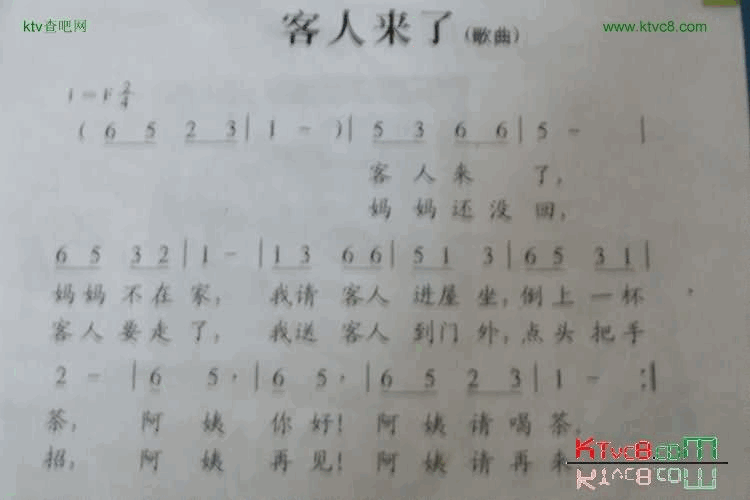 ktv查吧网
www.ktvc8.com
客人来了(歌曲)
1=F 2/4
( 6 5 2 3 | 1 - ) | 5 3 6 6 | 5 - |
客人来了,
妈妈还没回,
6 5 3 2 | 1 - | 1 3 6 6 | 5 1 3 | 6 5 3 1 |
妈妈不在家, 我请客人进屋坐,倒上一杯
客人要走了, 我送客人到门外,点头把手
2 - | 6 5· | 6 5· | 6 5 2 3 | 1 - :‖
茶, 阿姨你好!阿姨请喝茶。
招, 阿姨再见!阿姨请再来
KTvc8.com